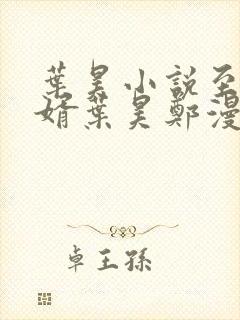 葉昊小說至
婿葉昊鄭漫
卓王孫